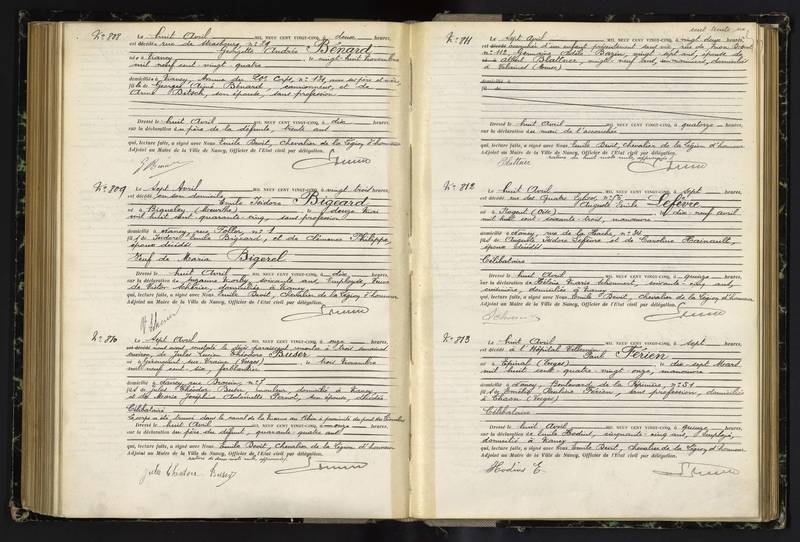 N° 808 Le huit Avril MIL NEUF CENT VINGT-CINQ, à douze heures,
est décédée rue de Strasbourg, n° 29
Georgette Andrée Bénard
née à Nancy le vingt huit novembre
mil neuf cent vingt quatre
domiciliée à Nancy, Avenue du 20e Corps, n° 131, avec ses père et mère,
fille de Georges Aimé Bénard, camionneur, et de
Anne Betsch, son épouse, sans profession
Dressé le huit Avril MIL NEUF CENT VINGT-CINQ, à dix heures,
sur la déclaration du père de la défunte, trente ans
qui, lecture faite, a signé avec Nous Emile Benit, Chevalier de la Légion d'honneur
Adjoint au Maire de la Ville de Nancy, Officier de l'Etat civil par délégation.
N° 809 Le Sept Avril MIL NEUF CENT VINGT-CINQ, à vingt trois heures,
est décédé en son domicile
Emile Isidore Bigeard
né à (Meurthe) le douze
mil huit cent quarante cinq, sans profession
domicilié à Nancy, rue n° 1
fils de Isidore Emile Bigeard, et de Philippe,
époux décédés
Veuf de Maria Bigerel
Dressé le huit Avril MIL NEUF CENT VINGT-CINQ, à dix heures,
sur la déclaration de Suzanne soixante ans, employée, Veuve
de Victor domiciliée à Nancy
qui, lecture faite, a signé avec Nous Emile Benit, Chevalier de la Légion d'honneur
Adjoint au Maire de la Ville de Nancy, Officier de l'Etat civil par délégation.
N° 810 Le Sept Avril MIL NEUF CENT VINGT-CINQ, à onze heures,
avons constaté le décès paraissant remonter à trois semaines
environ, de Jules Lucien Théodore Buser
né à (Vosges) le trois novembre
mil neuf cent six, ferblantier
domicilié à Nancy, rue n° 7
fils de Jules Théodore Buser, domicilié à Nancy,
et de Marie Joséphine Antoinette Pernot, son épouse, décédée
Célibataire
Le corps a été trouvé dans le canal de la Marne au Rhin à proximité du pont
Dressé le huit Avril MIL NEUF CENT VINGT-CINQ, à onze heures,
sur la déclaration du père du défunt, quarante quatre ans
qui, lecture faite, a signé avec Nous Emile Benit, Chevalier de la Légion d'honneur
Adjoint au Maire de la Ville de Nancy, Officier de l'Etat civil par délégation.
Jules Théodore Buser
cent trente
N° 811 Le Sept Avril MIL NEUF CENT VINGT-CINQ, à vingt deux heures,
est accouchée d'un enfant présentement sans vie, rue
n° 112, Germaine Adèle Bazin, vingt sept ans, épouse de
Albert Blattner, vingt neuf ans, domiciliés
à
domicilié à
fils de
Dressé le huit Avril MIL NEUF CENT VINGT-CINQ, à quatorze heures,
sur la déclaration du mari de l'accouchée
qui, lecture faite, a signé avec Nous Emile Benit, Chevalier de la Légion d'honneur
Adjoint au Maire de la Ville de Nancy, Officier de l'Etat civil par délégation.
Blattner
N° 812 Le huit Avril MIL NEUF CENT VINGT-CINQ, à sept heures,
est décédé rue des Quatre Eglises, n°
Auguste Emile Lefèvre
né à Nogent (Oise) le dix neuf avril
mil huit cent soixante trois, manœuvre
domicilié à Nancy, rue de la Hache, n° 34
fils de Auguste Isidore Lefèvre et de Caroline Hainault,
époux décédés
Célibataire
Dressé le huit Avril MIL NEUF CENT VINGT-CINQ, à quinze heures,
sur la déclaration de Hélène Marie soixante cinq ans,
domiciliée à Nancy
qui, lecture faite, a signé avec Nous Emile Benit, Chevalier de la Légion d'honneur
Adjoint au Maire de la Ville de Nancy, Officier de l'Etat civil par délégation.
N° 813 Le huit Avril MIL NEUF CENT VINGT-CINQ, à sept heures,
est décédé à l'Hôpital Villemin
Paul Férien
né à Epinal (Vosges) le dix sept Mars
mil huit cent quatre vingt onze, manœuvre
domicilié à Nancy, Boulevard de la Pépinière, n° 51
fils de Pauline Férien, sans profession, domiciliée
à Thaon (Vosges)
Célibataire
Dressé le huit Avril MIL NEUF CENT VINGT-CINQ, à quinze heures,
sur la déclaration de Emile Hodius, cinquante cinq ans, employé,
domicilié à Nancy
qui, lecture faite, a signé avec Nous Emile Benit, Chevalier de la Légion d'honneur
Adjoint au Maire de la Ville de Nancy, Officier de l'Etat civil par délégation.
Hodius E.